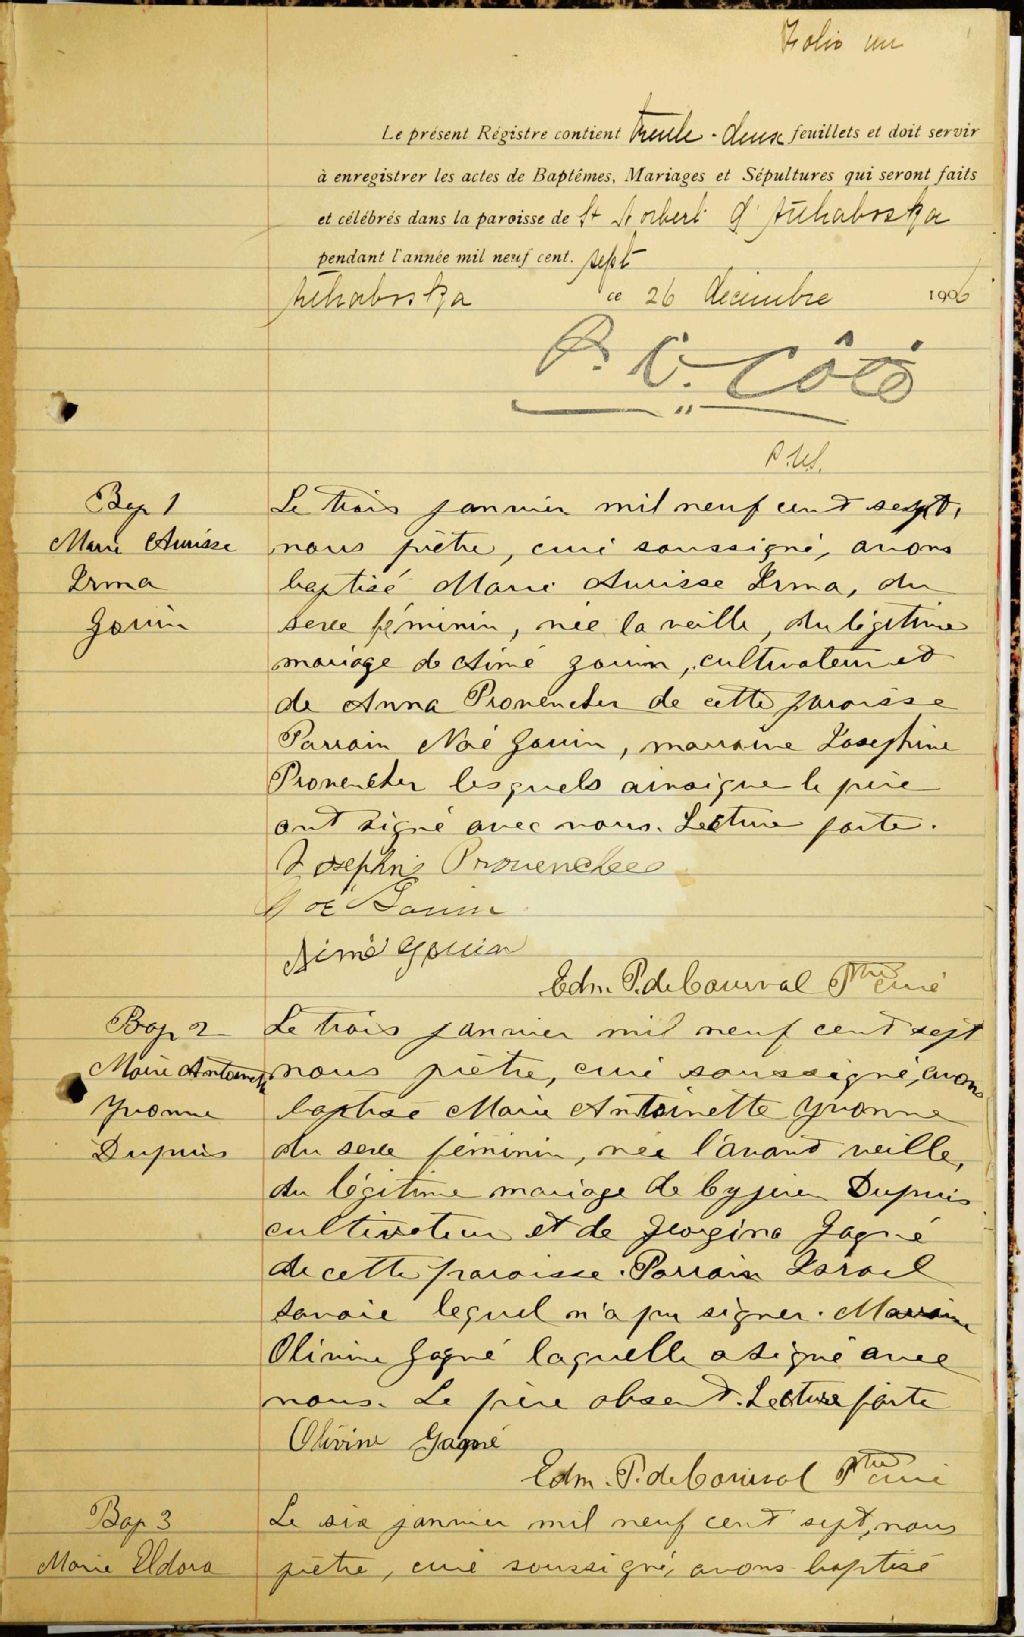 Folio un
Le présent Régistre contient trente-deux feuillets et doit servir
à enregistrer les actes de Baptêmes, Mariages et Sépultures qui seront faits
et célébrés dans la paroisse de St Norbert d'Arthabaska
pendant l'année mil neuf cent. sept
Arthabaska ce 26 décembre 1906
P. C. Côté
Bap 1
Marie Aurisse
Irma
Gouin
Le trois janvier mil neuf cent sept,
nous prêtre, curé soussigné, avons
baptisé Marie Aurisse Irma, du
sexe féminin, née la veille, du légitime
mariage de Aimé Gouin, cultivateur et
de Anna Provencher de cette paroisse
Parrain Noé Gouin, marraine Joséphine
Provencher lesquels ainsique le père
ont signé avec nous. Lecture faite.
Josephine Provencher
Noé Gouin
Aimé Gouin
Edm. P. de Courval Ptre curé
Bap 2
Marie Antoinette
Yvonne
Dupuis
Le trois janvier mil neuf cent sept
nous prêtre, curé soussigné, avons
baptisé Marie Antoinette Yvonne
du sexe féminin, née l'avant veille,
du légitime mariage de Cyprien Dupuis
cultivateur et de Georgina Gagné
de cette paroisse. Parrain Israel
Savoie lequel n'a pu signer. Marraine
Olivine Gagné laquelle a signé avec
nous. Le père absent. Lecture faite
Olivine Gagné
Edm. P. de Courval Ptre curé
Bap 3
Marie Eldora
Le six janvier mil neuf cent sept, nous
prêtre, curé soussigné, avons baptisé